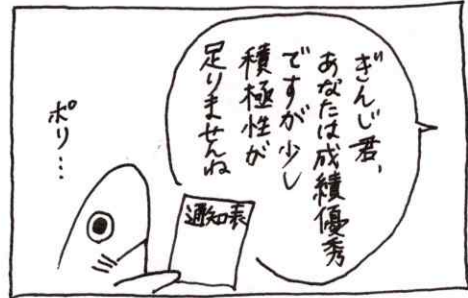 ぎんじ君、
あなたは成績優秀
ですが少し
積極性が
足りませんね
通知表
ポリ…